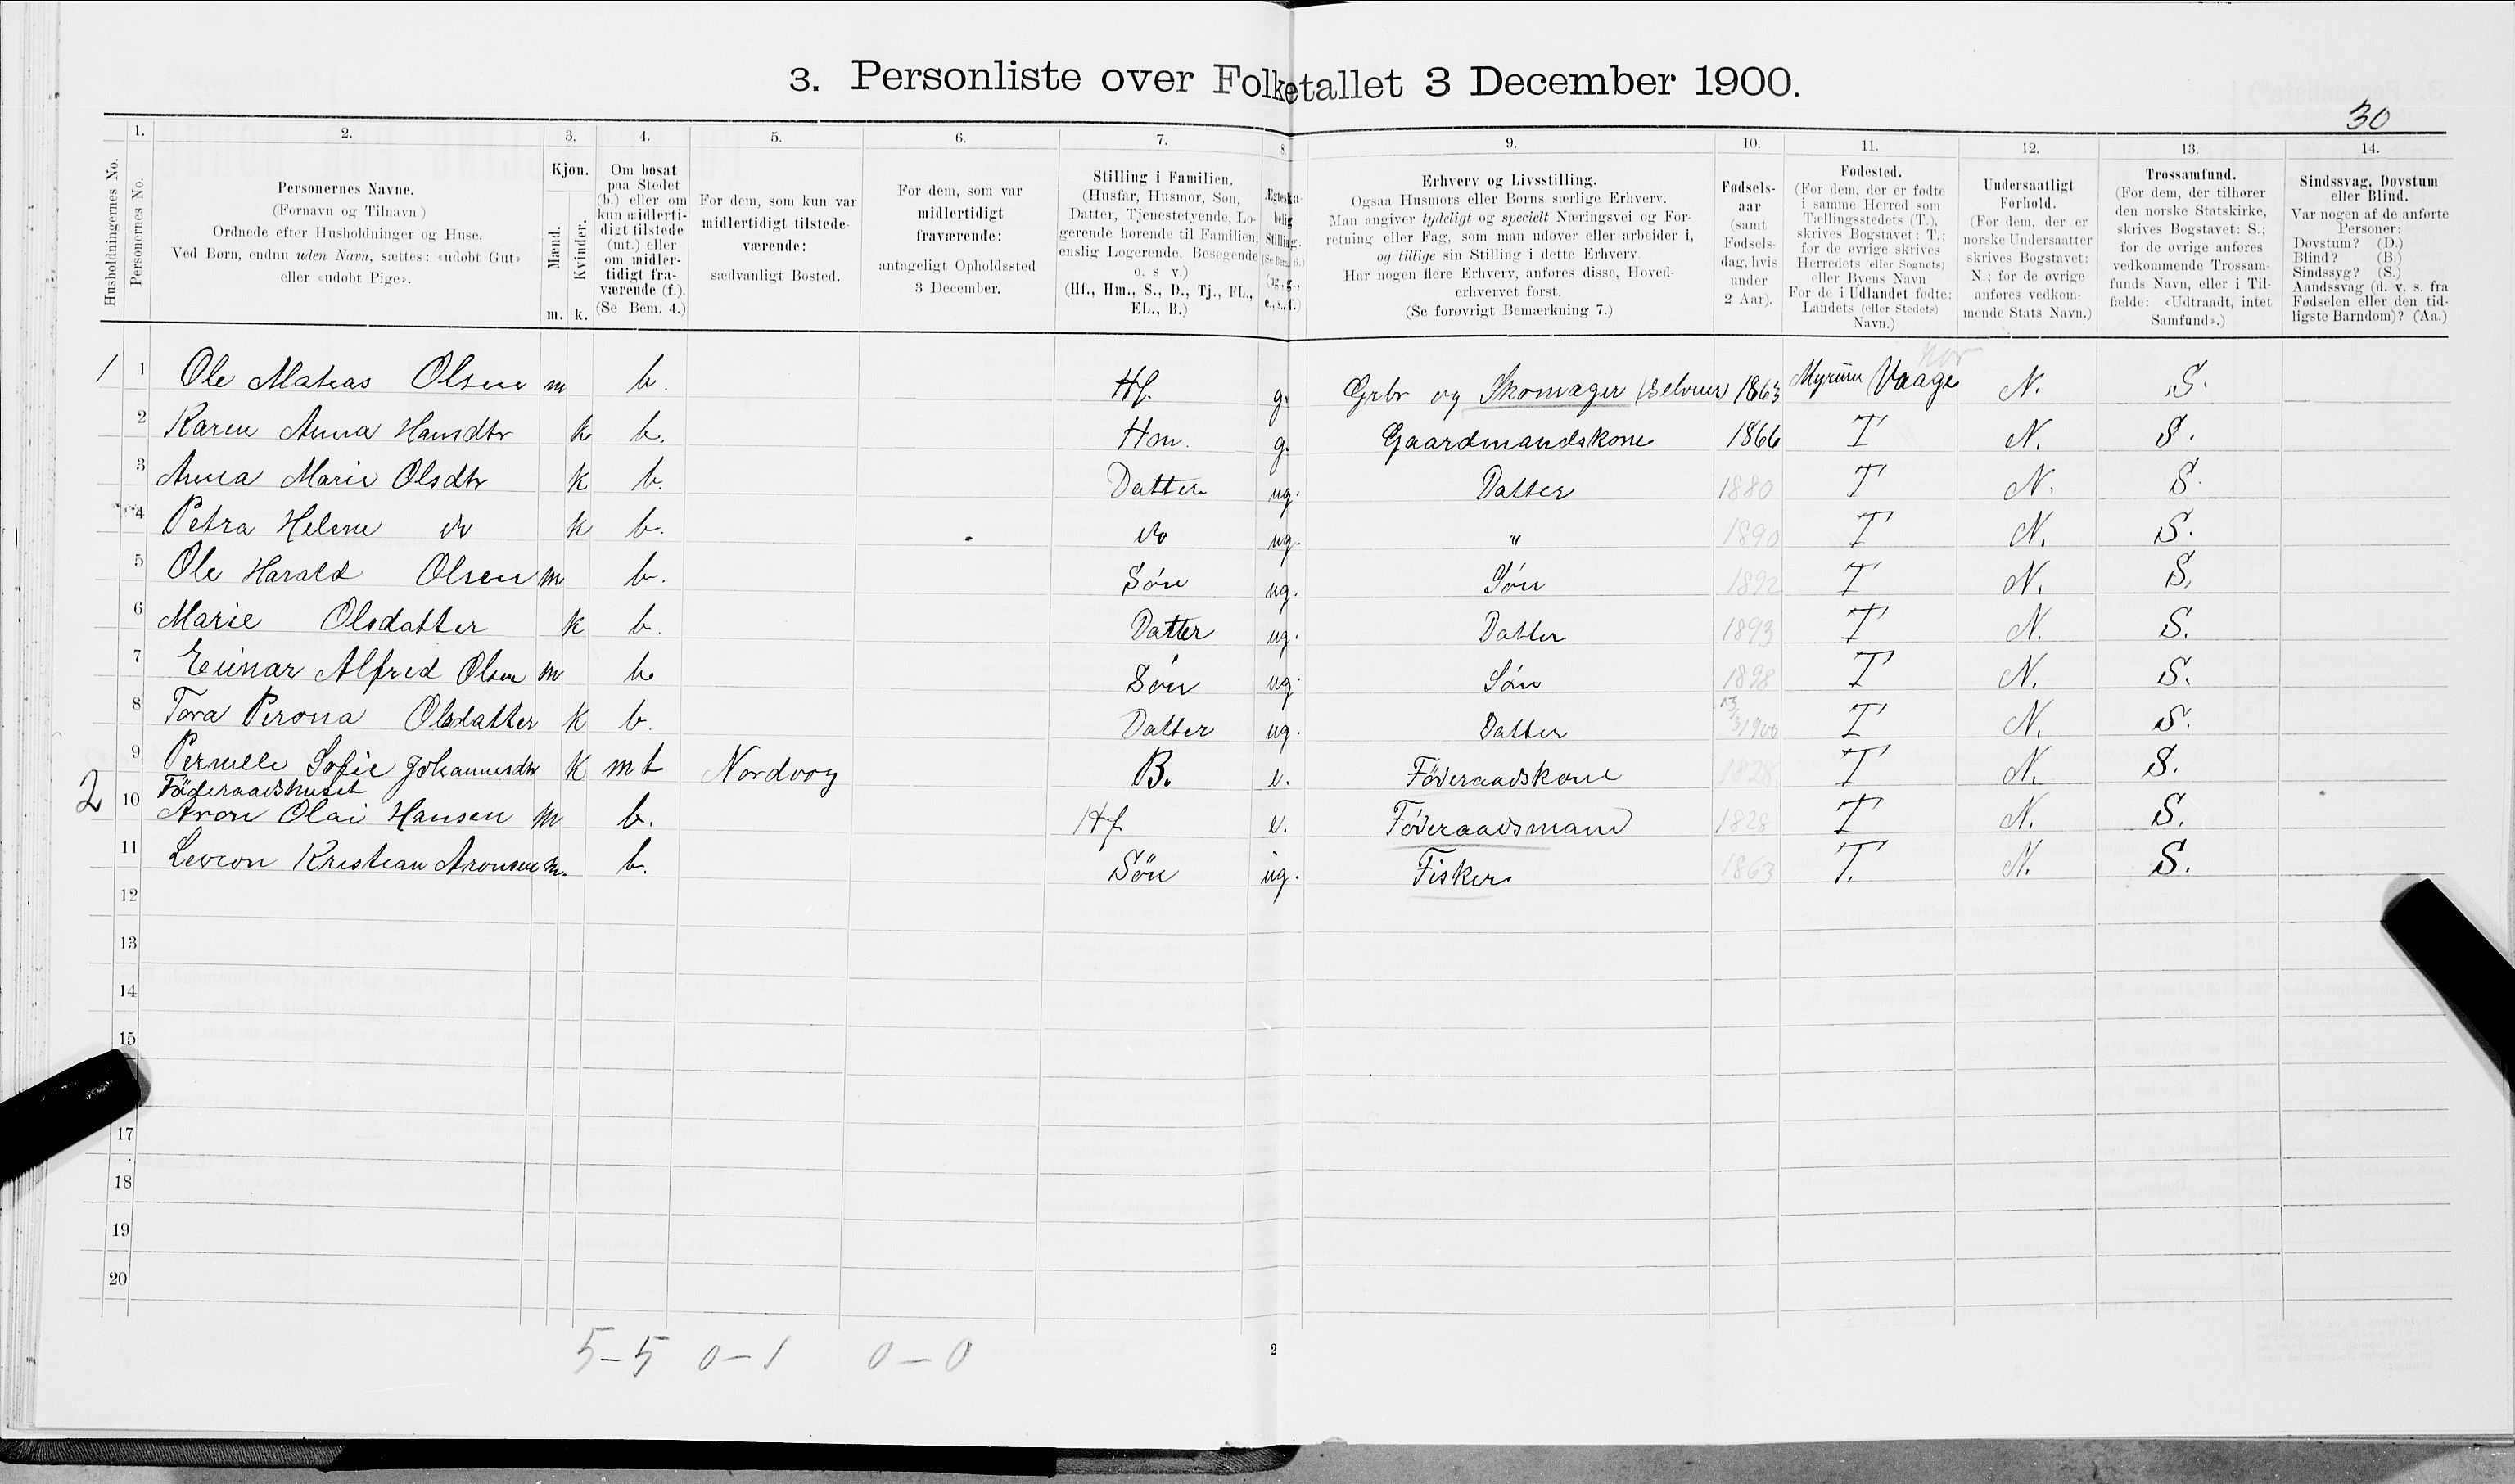 3. Personliste over Folketallet 3 December 1900.
30
1. 2. 3. 4. 5. 6. 7. 8. 9. 10. 11. 12. 13. 14.
Husholdningernes No.
Personernes No.
Personernes Navne.
(Fornavn og Tilnavn)
Ordnede efter Husholdninger og Huse.
Ved Børn, endnu uden Navn, sættes: «udøbt Gut»
eller «udøbt Pige».
Kjøn.
Mænd.
Kvinder.
m. k.
Om bosat
paa Stedet
(b.) eller om
kun midlerti-
digt tilstede
(mt.) eller
om midler-
tidigt fra-
værende (f.).
(Se Bem. 4.)
For dem, som kun var
midlertidigt tilstede-
værende:
sædvanligt Bosted.
For dem, som var
midlertidigt
fraværende:
antageligt Opholdssted
3 December.
Stilling i Familien.
(Husfar, Husmor, Søn,
Datter, Tjenestetyende, Lo-
gerende hørende til Familien,
enslig Logerende, Besøgende
o. s v.)
(Hf., Hm., S., D., Tj., FL.,
EL., B.)
Ægteska-
belig
Stilling.
(Se Bem. 6.)
(ug., g.,
e., s., f.)
Erhverv og Livsstilling.
Ogsaa Husmors eller Børns særlige Erhverv.
Man angiver tydeligt og specielt Næringsvei og For-
retning eller Fag, som man udøver eller arbeider i,
og tillige sin Stilling i dette Erhverv.
Har nogen flere Erhverv, anføres disse, Hoved-
erhvervet først.
(Se forøvrigt Bemærkning 7.)
Fødsels-
aar
(samt
Fødsels-
dag, hvis
under
2 Aar).
Fødested.
(For dem, der er fødte
i samme Herred som
Tællingsstedets (T.),
skrives Bogstavet: T.;
for de øvrige skrives
Herredets (eller Sognets)
eller Byens Navn
For de i Udlandet fødte:
Landets (eller Stedets)
Navn.)
Undersaatligt
Forhold.
(For dem, der er
norske Undersaatter
skrives Bogstavet:
N.; for de øvrige
anføres vedkom-
mende Stats Navn.)
Trossamfund.
(For dem, der tilhører
den norske Statskirke,
skrives Bogstavet: S.;
for de øvrige anføres
vedkommende Trossam-
funds Navn, eller i Til-
fælde: «Udtraadt, intet
Samfund».)
Sindssvag, Døvstum
eller Blind.
Var nogen af de anførte
Personer:
Døvstum? (D.)
Blind? (B.)
Sindssyg? (S.)
Aandssvag (d. v. s. fra
Fødselen eller den tid-
ligste Barndom)? (Aa.)
1 1 Ole Matias Olsen m b. Hf. g. Grbr og Skomager (Selveier) 1863 Vaage N. S.
2 Karen Anna Hansdtr k b. Hm. g. Gaardmandskone 1866 T N. S.
3 Anna Marie Olsdtr k b. Datter ug. Datter 1880 T N. S.
4 Petra Helene do k b. do ug. " 1890 T N. S.
5 Ole Harald Olsen m b. Søn ug. Søn 1892 T N. S.
6 Marie Olsdatter k b. Datter ug. Datter 1893 T N. S.
7 Einar Alfred Olsen m b. Søn ug. Søn 1898 T N. S.
8 Tora Perona Olsdatter k b. Datter ug. Datter 13/3 1900 T N. S.
9 Pernelle Sofie Johannesdtr k mt Nordvog B. e. Föderaadskone 1828 T N. S.
Föderaadshuset
2 10 Aron Olai Hansen m b. Hf e. Föderaadsmand 1828 T N. S.
11 Kristian Aronsen m. b. Søn ug. Fisker 1863 T. N. S.
12
13
14
15
17
18
19
20
5-5 0-1 0-0
2